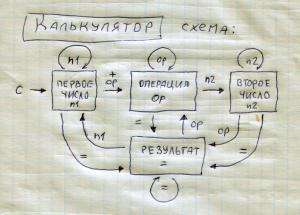 КАЛЬКУЛЯТОР схема:
n1 op n2
+
C ПЕРВОЕ ЧИСЛО n1 op ОПЕРАЦИЯ op n2 ВТОРОЕ ЧИСЛО n2
= n1 = op op =
РЕЗУЛЬТАТ
=
=